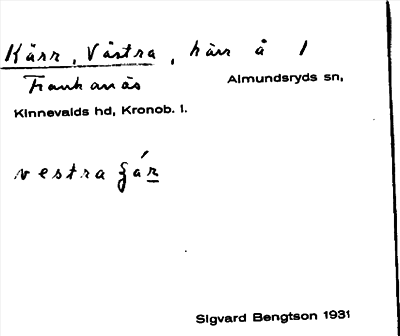 Kärr, Västra, häv å 1
Frankanäs
Almundsryds sn,
Kinnevalds hd, Kronob. l.
vestra
Sigvard Bengtson 1931